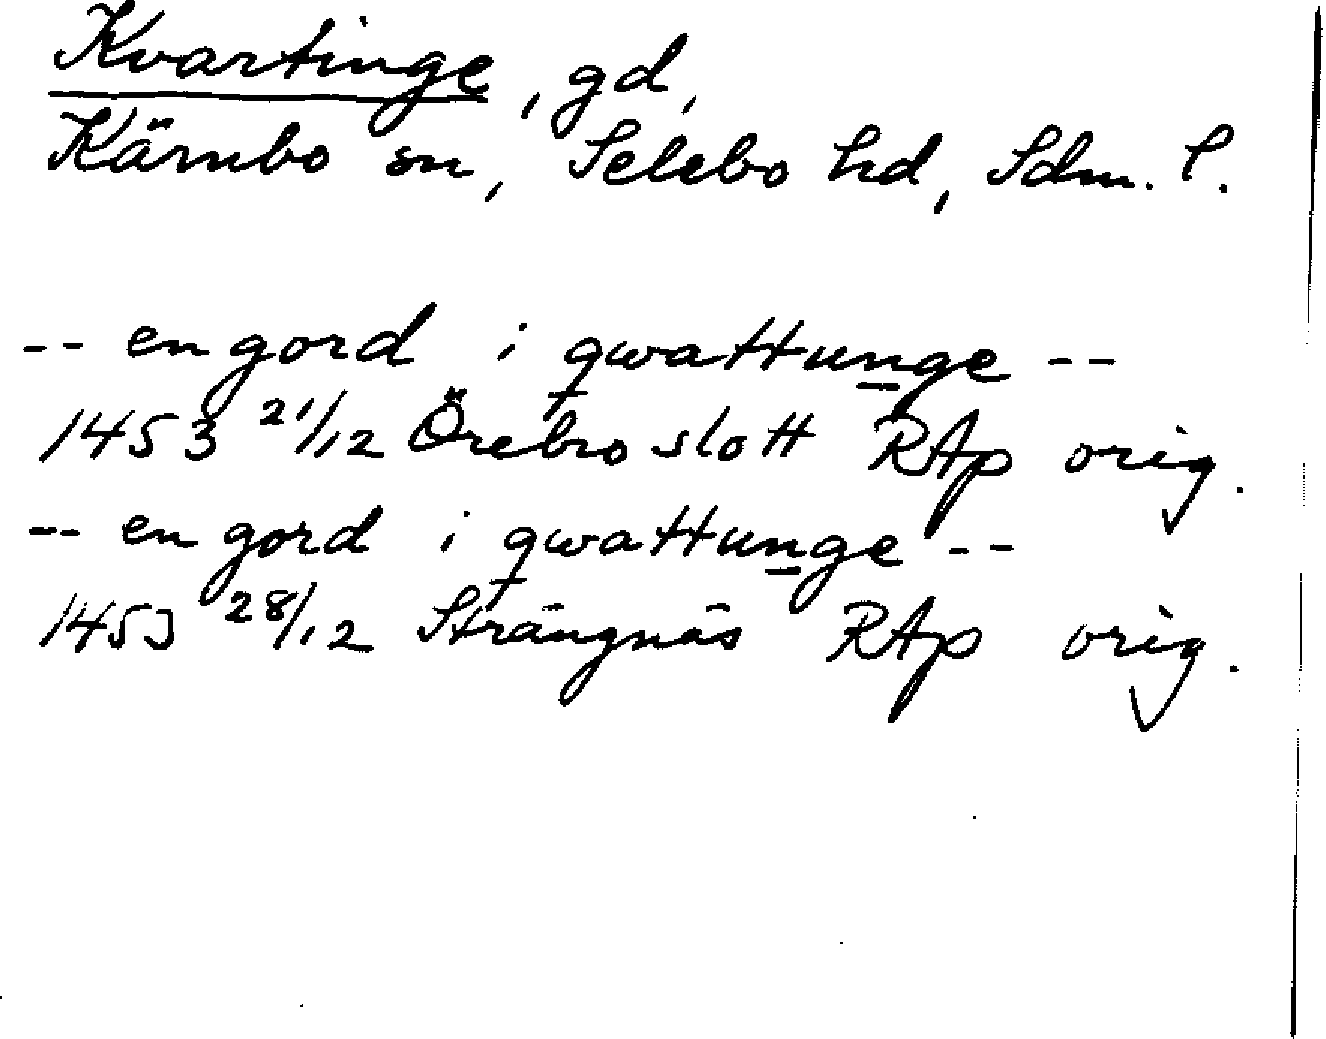 Kvartinge, gd,
Kärnbo sn, Selebo hd, Sdm. l.
-- en gord i qwattunge --
1453 21/12 Örebro slott RAp orig.
-- en gord i qwattunge --
1453 28/12 Strängnäs RAp orig.